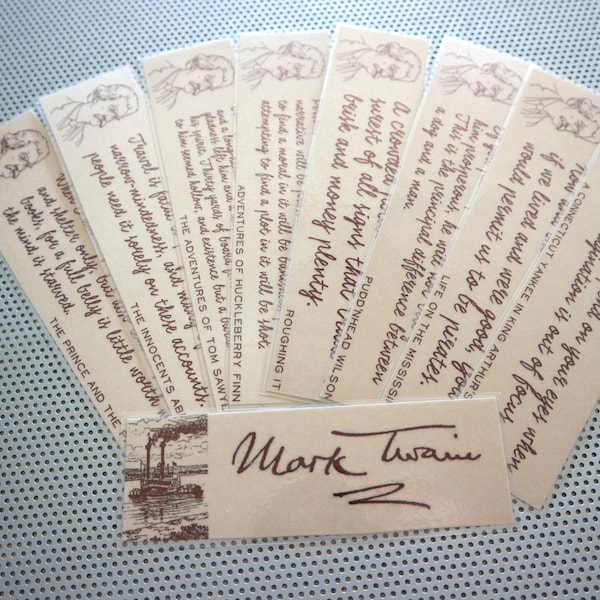 and shelter only, but
books, for a full belly is little worth
the mind is starved.
THE PRINCE AND THE
Travel is fatal
narrow-mindedness, and many
people need it sorely on these accounts.
THE INNOCENTS AB
to him seemed hollow, and existence but a
THE ADVENTURES OF TOM SAWYE
narrative will be
to find a moral in it will be
attempting to find a plot in it will be shot.
ADVENTURES OF HUCKLEBERRY FINN
a crowded
surest of all signs that
brisk and money plenty
ROUGHING IT
him prosperous, he will
This is the principal difference between
a dog and a man
PUDD'NHEAD WILSON
if we lived and were good, God
would permit us to be pirates.
LIFE ON THE MISSISSI
on your eyes when
is out of focus
A CONNECTICUT YANKEE IN KING ARTHUR'S
Mark Twain